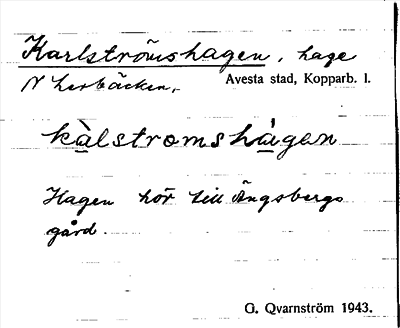 Karlströmshagen, hage
N
Avesta stad, Kopparb. l.
kàlstromshàgen
Hagen hör till Ängsbergs
gård.
G. Qvarnström 1943.